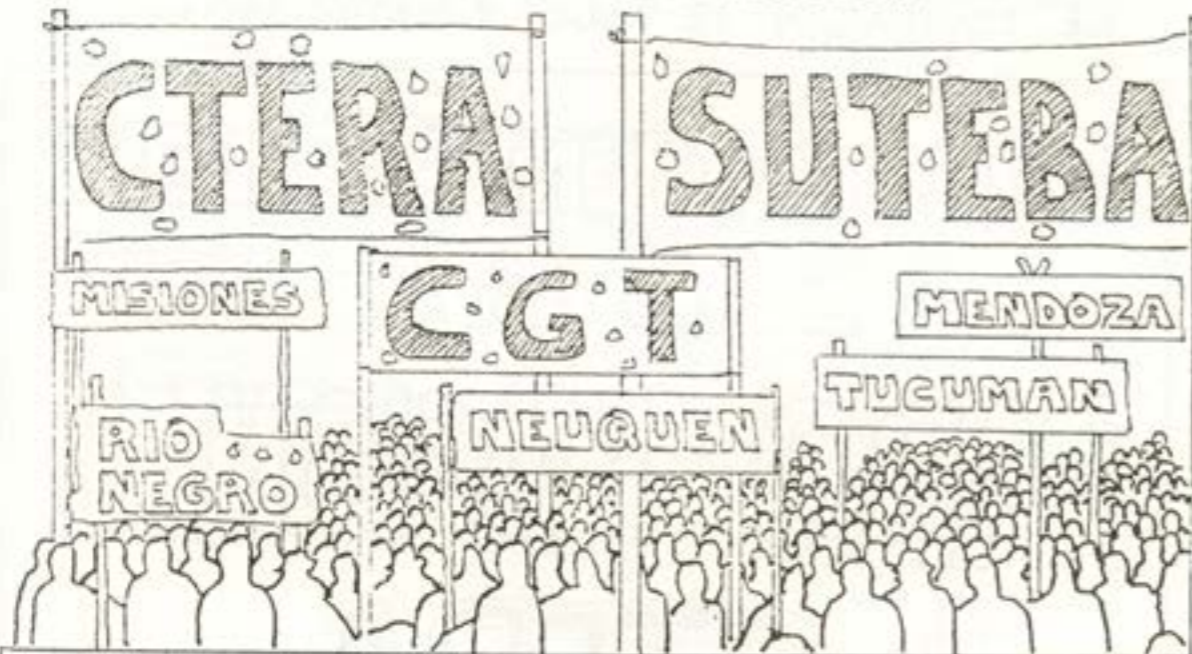 CTERA
SUTEBA
MISIONES
CGT
MENDOZA
TUCUMAN
RIO
NEGRO
NEUQUEN